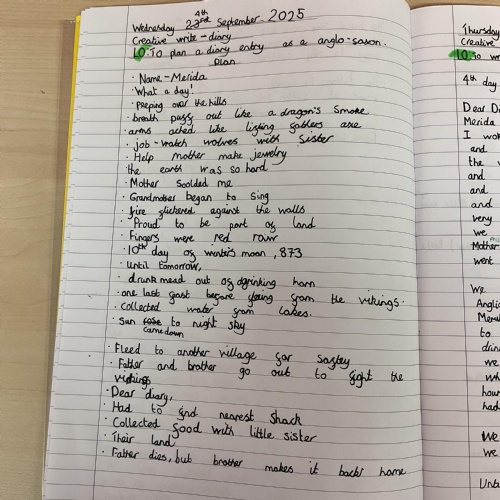 Wednesday 24th September 2025
Creative write-diary
LO: To plan a diary entry as a anglo-saxon.
Plan
· Name-Merida
· What a day!
· Peeping over the hills
· breath puffs out like a dragon's smoke
· arms ached like lifting fathers axe
· job-watch wolves with sister
· Help mother make jewelry
the earth was so hard
· Mother scolded me
· Grandmother began to sing
· fire flickered against the walls
· Proud to be part of land
· Fingers were red raw
· 10th day of moon, 873
· Until tomorrow,
· drank mead out of drinking horn
· one last feast before from the vikings.
· Collected water from lakes.
· Sun came down to night sky
· Fleed to another village for
· Father and brother go out to fight the
vikings
· Dear diary,
· Had to find nearest shack
· Collected food with little sister
· Their land
· Father dies, but brother makes it back home
Thursday
Creative
LO: To
4th day
Dear
Merida
I
and
the
and
and
and
very
we
Mother
went
We
to
we
hour
had
We
we